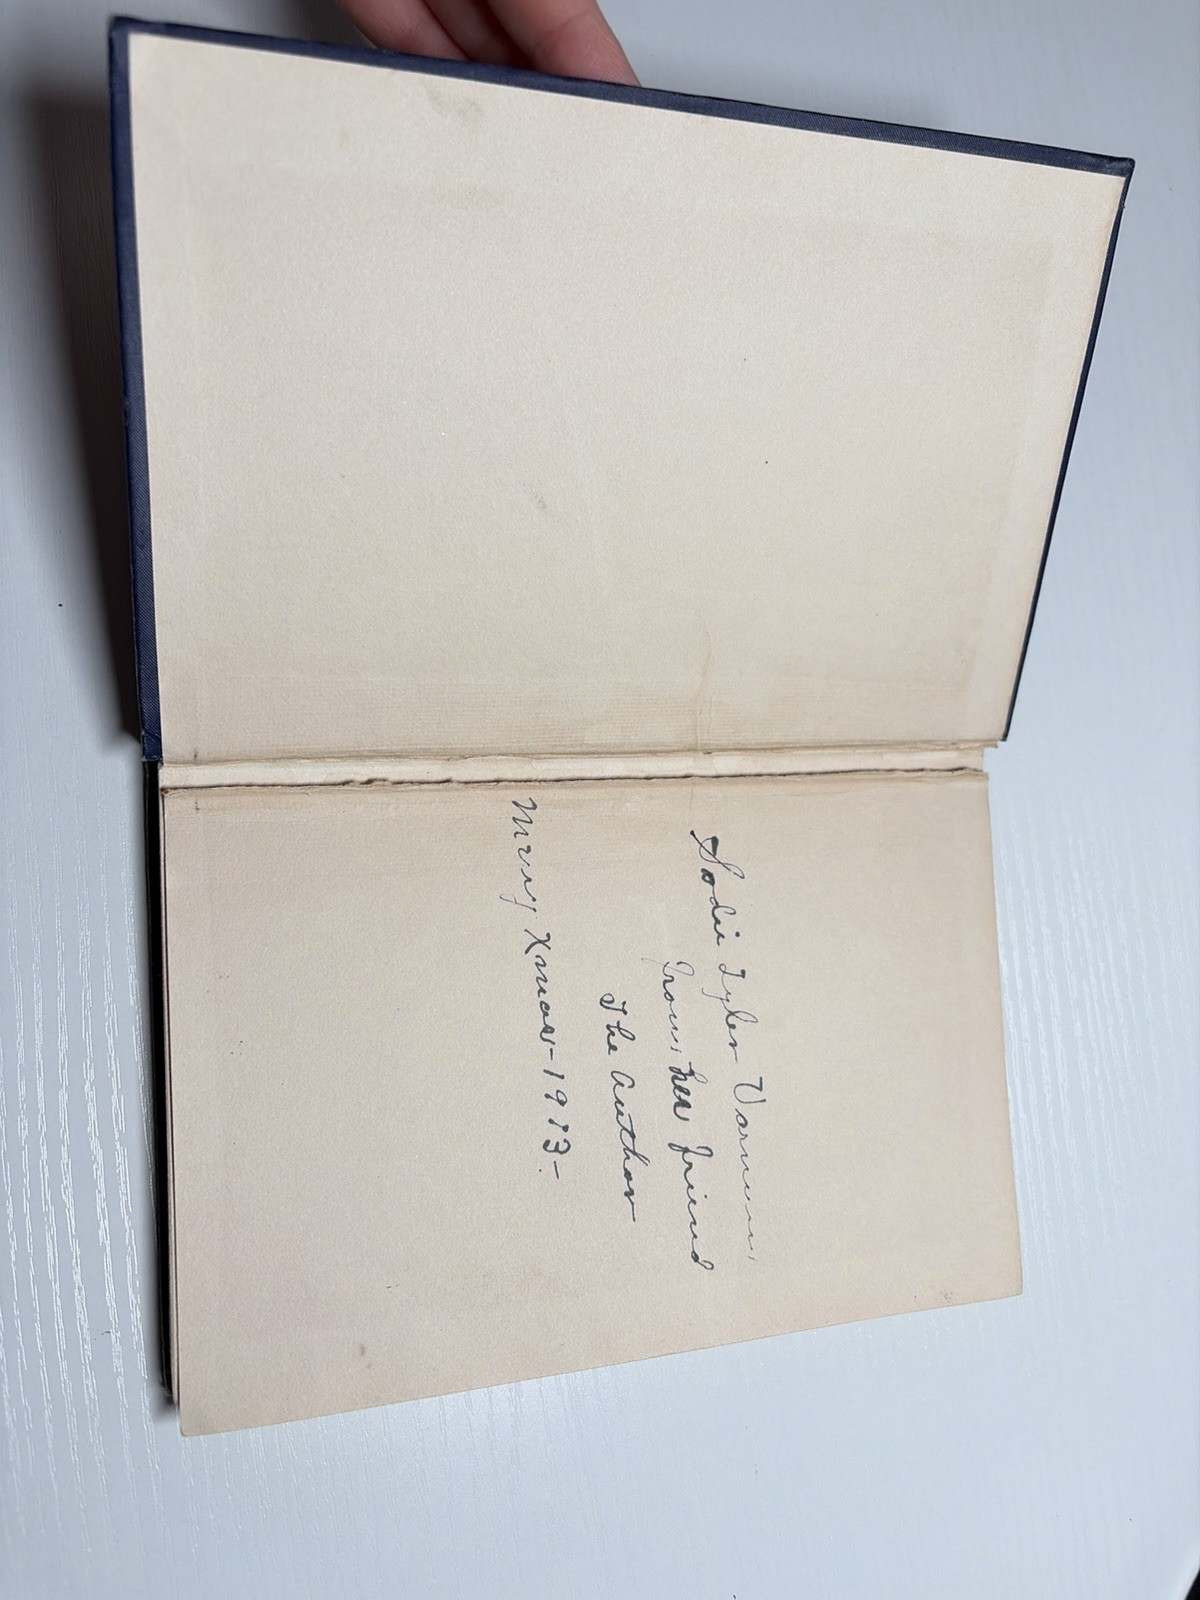 Sodie Tyler Varnum
from her friend
The Author
Merry Xmas-1913-